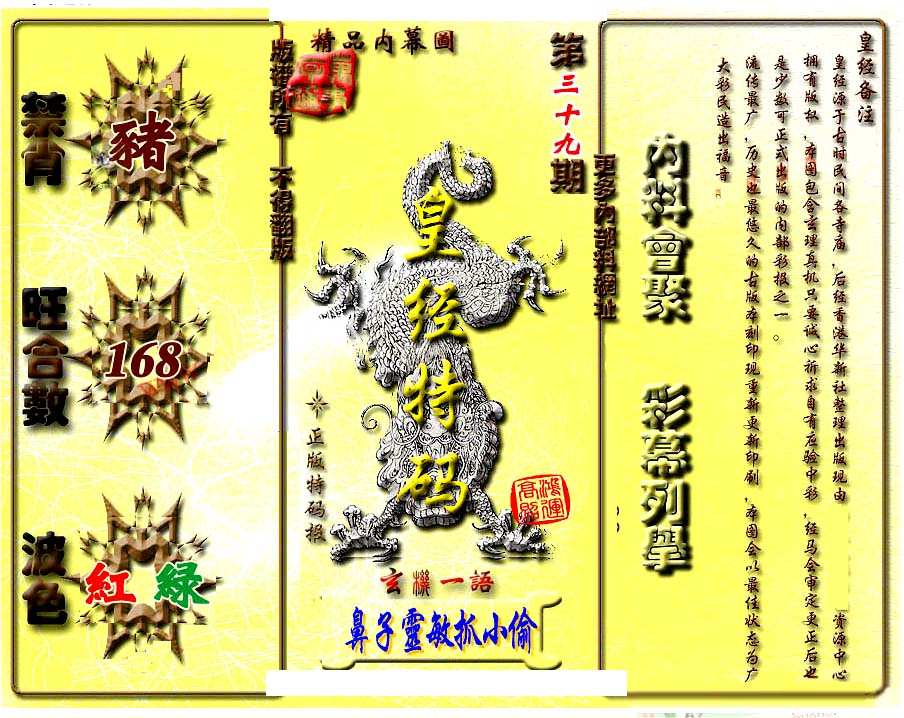 禁肖
豬
旺合數
168
波色
紅 綠
版權所有 不得翻版
精品内幕圖
第三十九期
更多內部料網址
皇经特码
正版特码报
鴻運高照
玄機一語
鼻子靈敏抓小偷
内料會聚
彩幕列舉
皇经备注
皇经源于古时民间各寺庙，后经香港华新社整理出版现由 资源中心
拥有版权，本图包含玄理真机只要诚心祈求自有应验中彩，经马会审定更正后也
是少数可正式出版的内部彩报之一。
流传最广，历史也最悠久的古版本刻印现重新更新印刷，本图会以最佳状态为广
大彩民造出福音